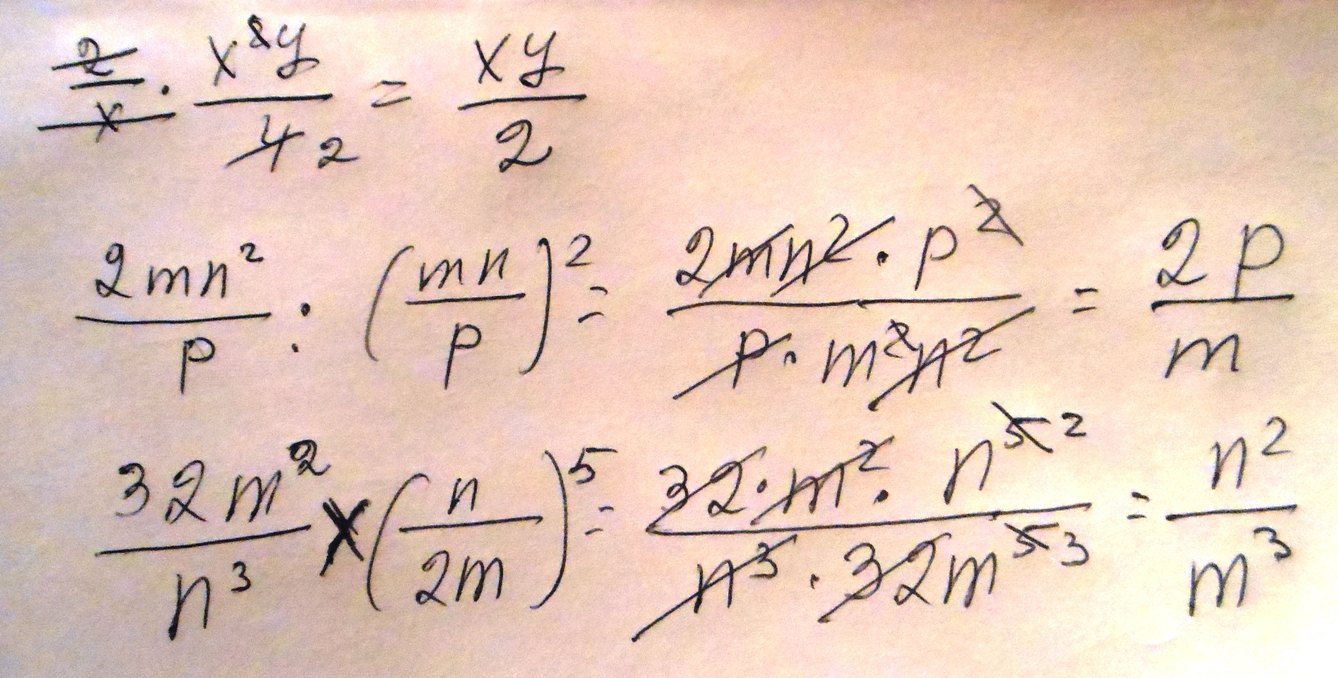 2/x · x²y/4 2 = xy/2
2mn²/p : (mn/p)² = 2mn² · p²/p · m²n² = 2p/m
32m²/n³ × (n/2m)⁵ = 32 · m² · n⁵ ²/n³ · 32m⁵ ³ = n²/m³